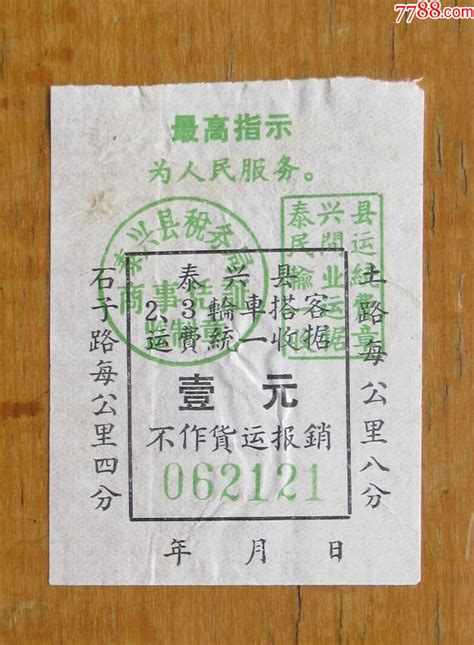 7788.com
最高指示
为人民服务。
泰兴县税务局
商事凭证
监制章
泰兴县
民間运
输业結
运費
收据章
泰兴县
2、3輪車搭客
运費統一收据
壹元
不作貨运报銷
062121
石子路每公里四分
土路每公里八分
年 月 日